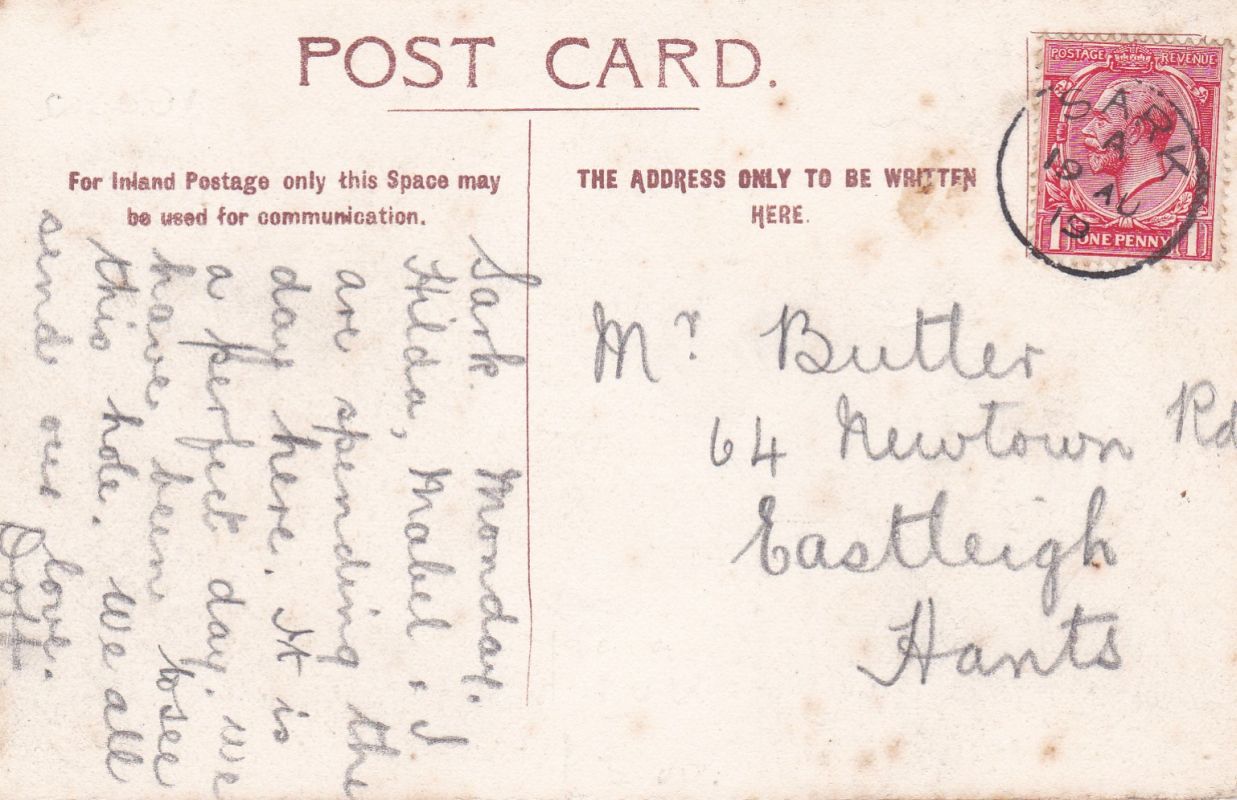 POST CARD.
For Inland Postage only this Space may
be used for communication.
THE ADDRESS ONLY TO BE WRITTEN
HERE.
POSTAGE REVENUE
ONE PENNY
1 1
SARK
A
19 AU
19
Mr. Butler
64 Newtown Rd
Eastleigh
Hants
Sark. Monday.
Hilda, Mabel & I
are spending the
day here. It is
a perfect day. We
have been to see
this hole. We all
send our love.
Doff